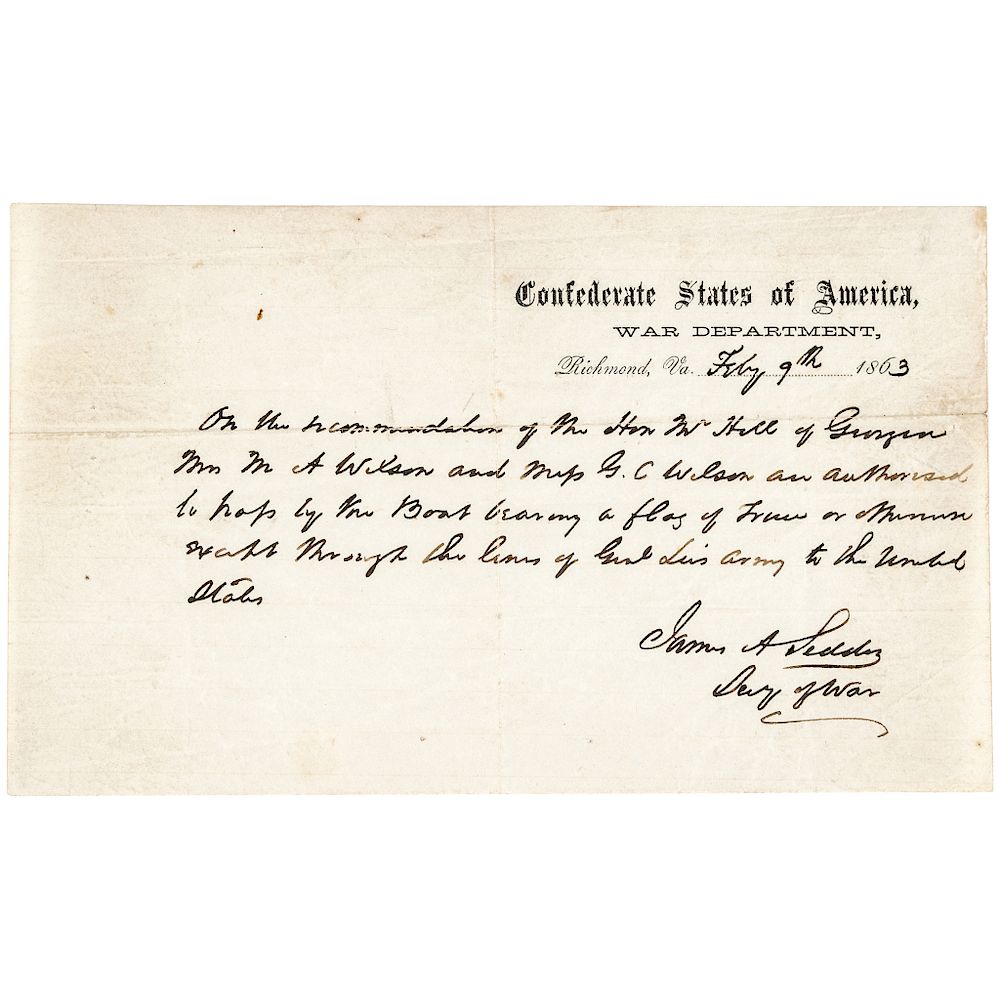 Confederate States of America,
WAR DEPARTMENT,
Richmond, Va. Feby 9th 1863
On the recommendation of the Hon Mr Hill of Georgia
Mrs M A Wilson and Miss G. C Wilson are authorised
to pass by the Boat bearing a flag of Truce or otherwise
except through the lines of Genl Lee's army to the United
States
James A Seddon
Secy of War